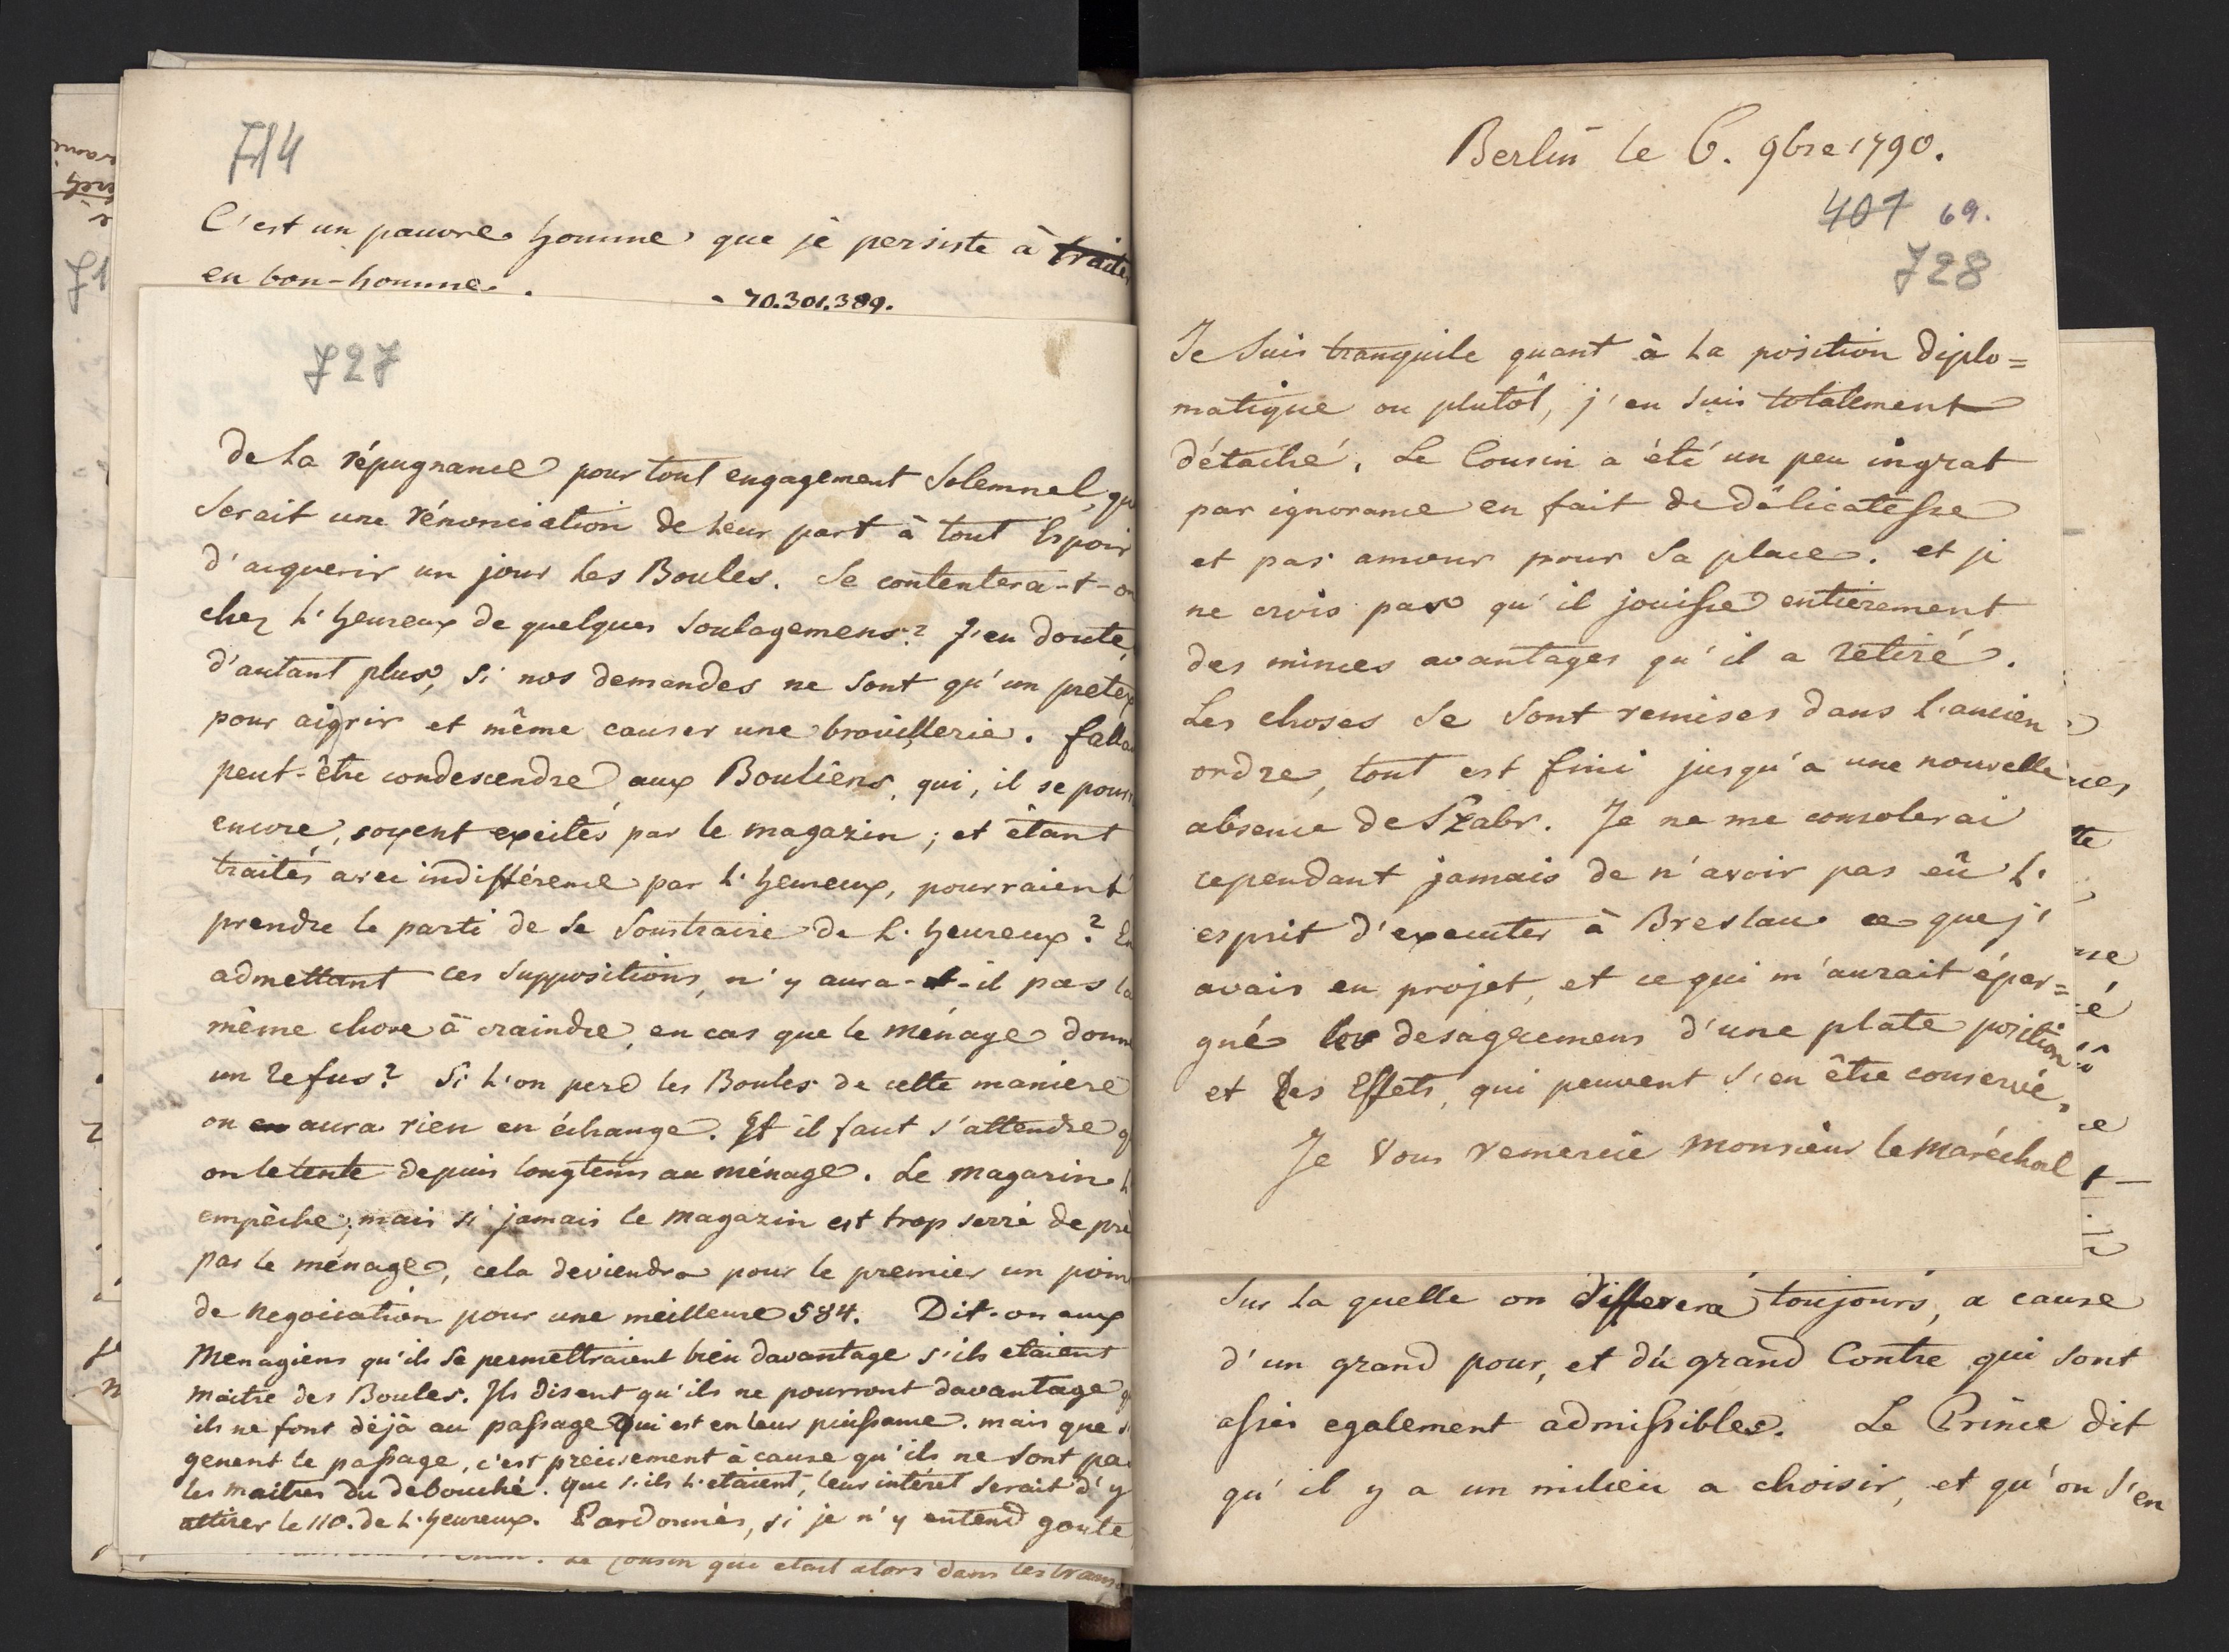 714
C'est un pauvre homme que je persiste à traiter
en bon-homme.
70.301.389.
727
de la répugnance pour tout engagement Solemnel, qui
Serait une rénonciation de leur part à tout Espoir
d'acquerir un jour les Boules. Se contentera-t-on
chez l'heureux de quelques Soulagemens? J'en doute,
d'autant plus, Si nos demandes ne Sont qu'un pretex
pour aigrir et même causer une brouillerie. falla
peut-être condescendre aux Bouliens, qui, il se pour
encore, soyent excités par le magazin; et étant
traités avec indifférence par l'heureux, pourraient
prendre le parti de se Soustraire de l'heureux? En
admettant ces Suppositions, n'y aura-t-il pas la
même chose à craindre, en cas que le ménage donn
un refus? Si l'on perd les Boules de cette maniere
on aura rien en échange. Et il faut s'attendre q
on le tente depuis longtems au ménage. Le magazin l
empêche; mais si jamais le magazin est trop serré de prè
par le ménage, cela deviendra pour le premier un poin
de negociation pour une meilleure 584. Dit-on aux
Menagiens qu'ils Se permettraient bien davantage s'ils etaient
maitre des Boules. Ils disent qu'ils ne pourront davantage q
ils ne font déjà au passage Qui est en leur puissance. mais que s
genent le passage, c'est precisement à cause qu'ils ne Sont pa
les maitres du debouché. que s'ils l'etaient, leur intéret Serait d'y
attirer le 110. de l'heureux. Pardonnés, si je n'y entend goute
Le Cousin qui etait alors dans les trans
Berlin le 6. 9bre 1790.
407 69.
728
Je Suis tranquile quant à la position diplo=
matique ou plutôt, j'en Suis totalement
détaché. Le Cousin a été un peu ingrat
par ignorance en fait de délicatesse
et par amour pour Sa place. et je
ne crois pas qu'il jouisse entierement
des minces avantages qu'il a retiré.
Les choses Se Sont remises dans l'ancien
ordre, tout est fini jusqu'a une nouvelle
absence de Szabr. Je ne me consolerai
cependant jamais de n'avoir pas eû l'
esprit d'executer à Breslau ce que j'
avais en projet, et ce qui m'aurait épar=
gné les desagremens d'une plate position
et des Effets, qui peuvent S'en être conservé,
Je Vous remercie Monsieur le Maréchal
Sur la quelle on differera toujours, a cause
d'un grand pour, et du grand Contre qui Sont
assés egalement admissibles. Le Prince dit
qu'il y a un milieu a choisir, et qu'on S'en